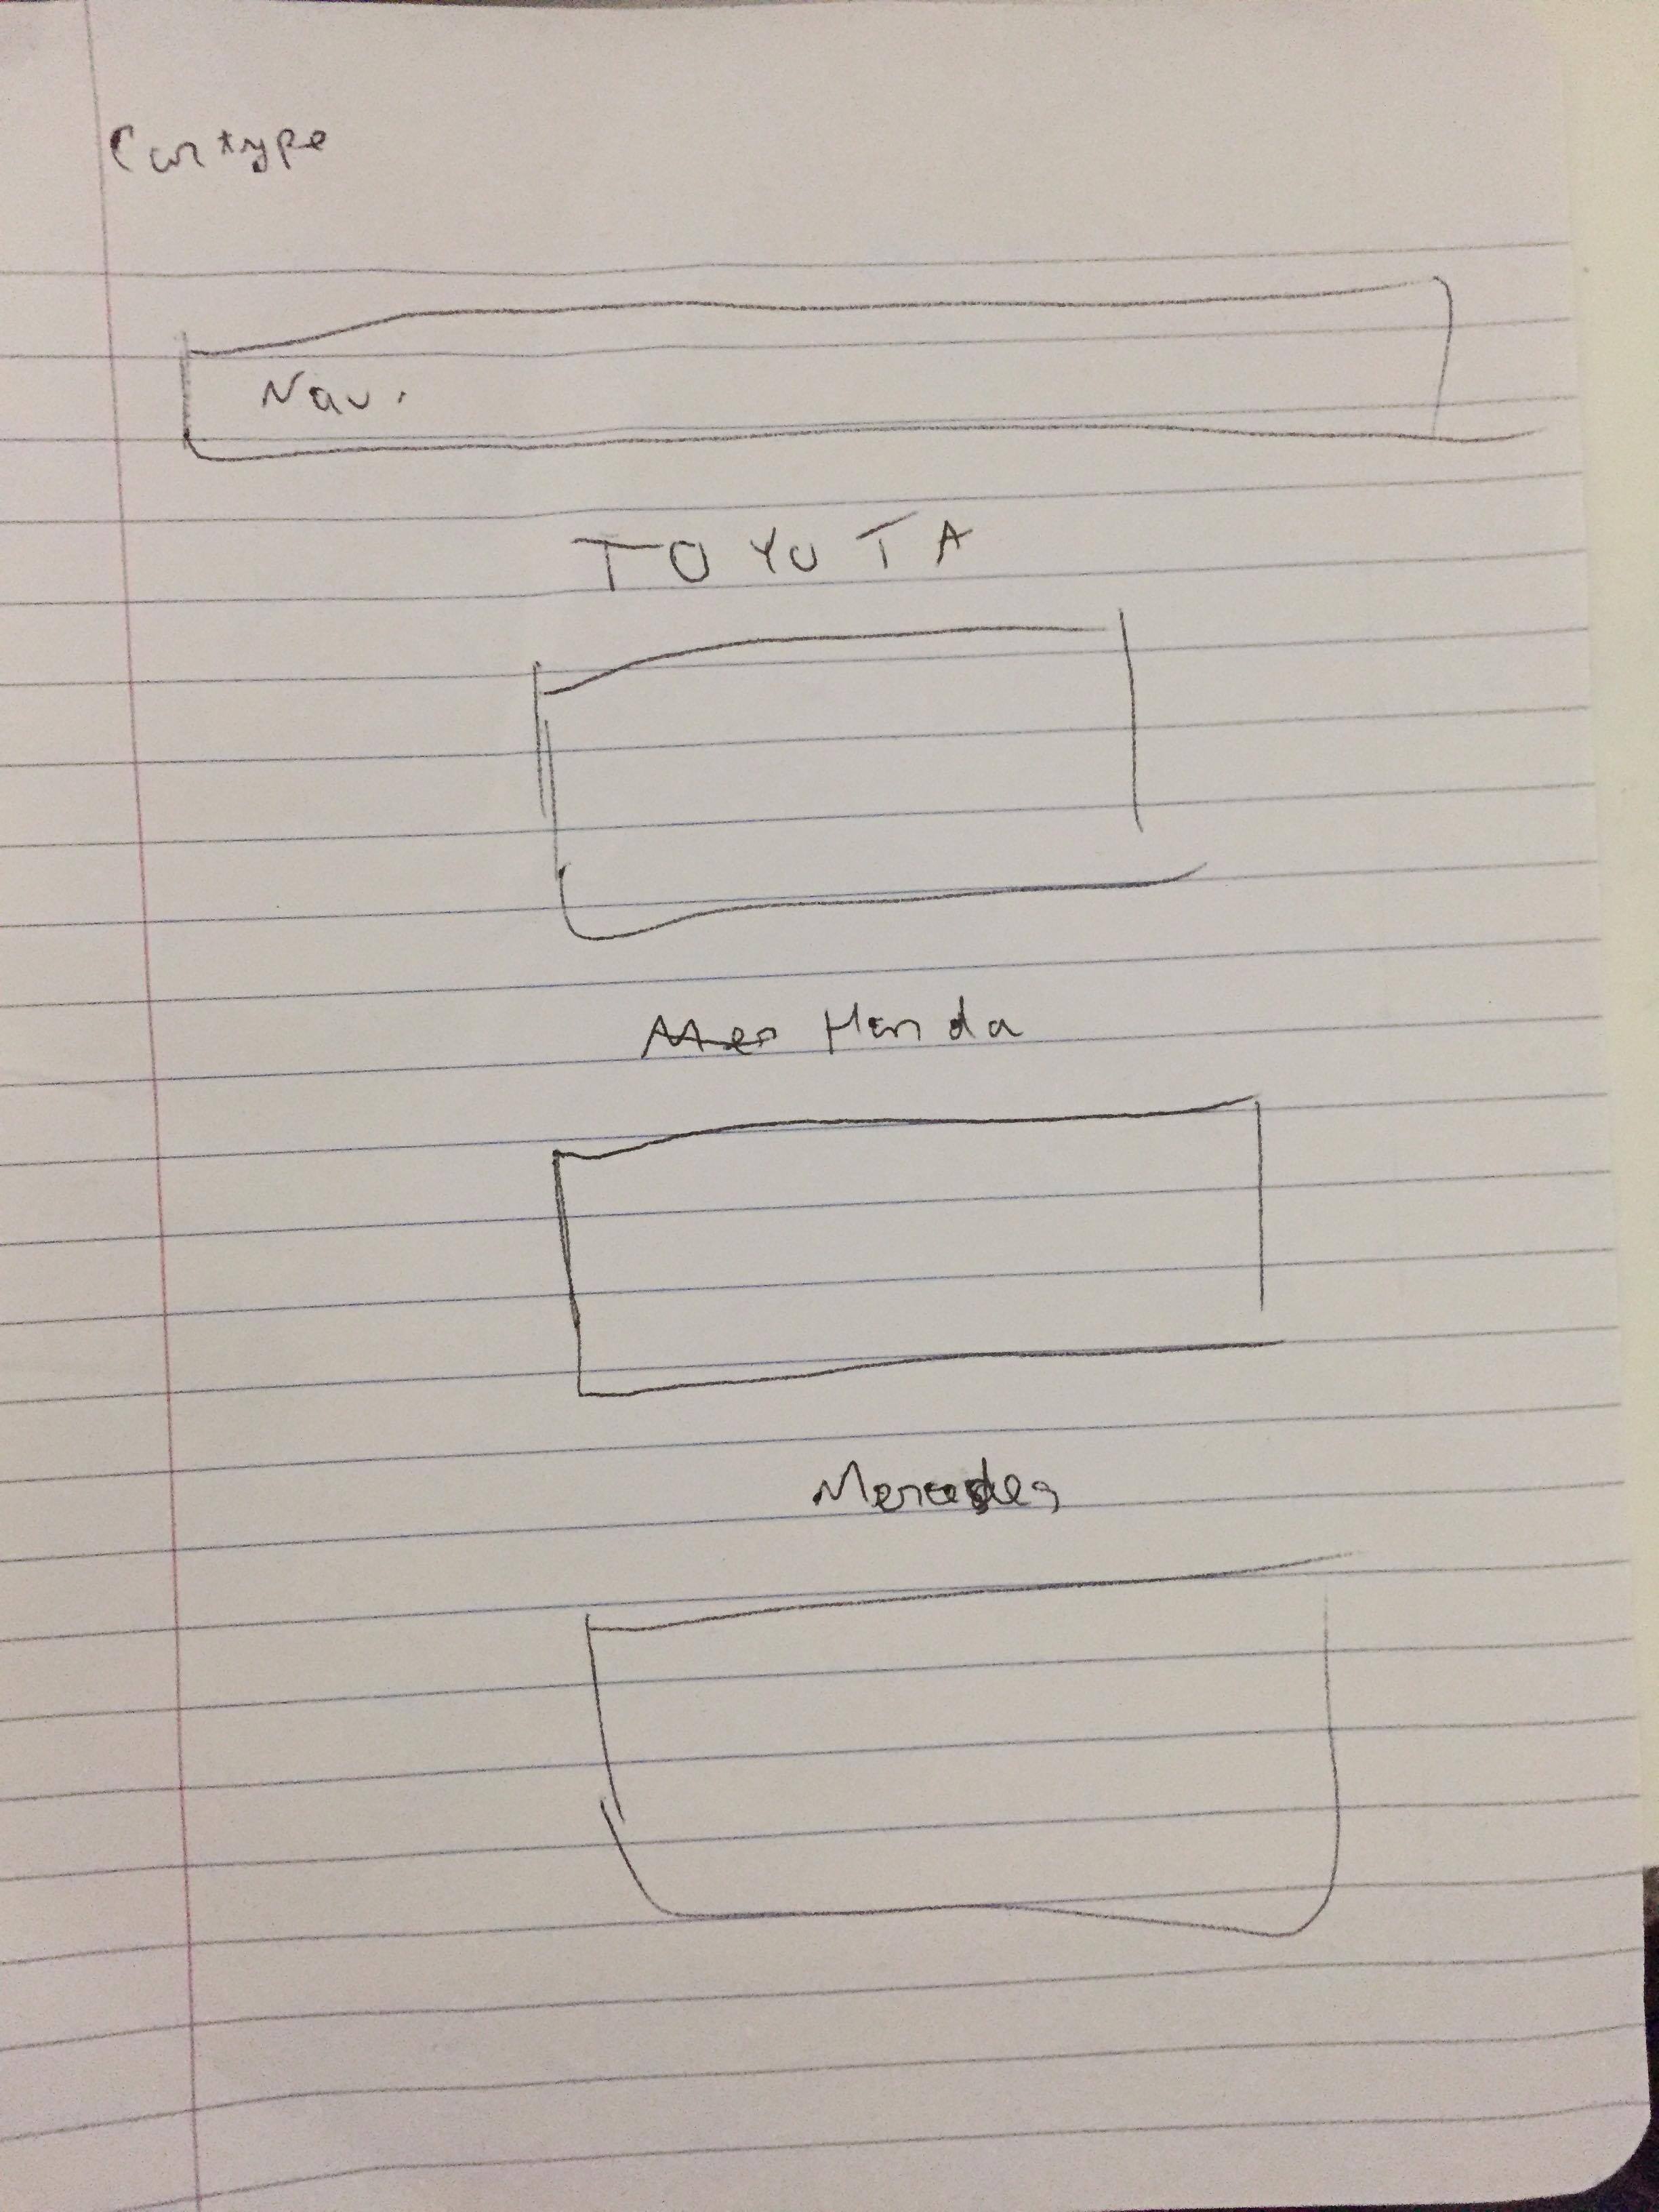 Car type
Nav.
TOYOTA
Mer Honda
Mercedes